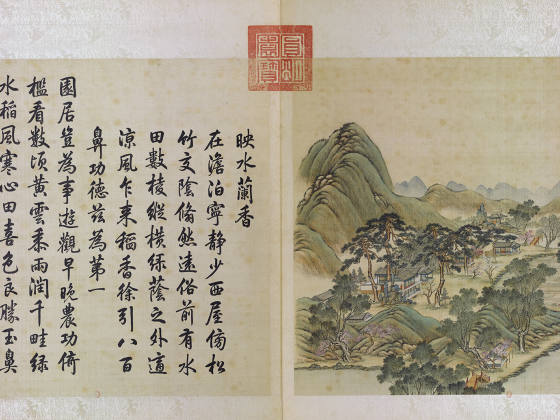 圓明
園寶
映水蘭香
在澹泊寧静少西屋傍松
竹交陰翛然遠俗前有水
田數棱縱橫綠蔭之外適
凉風乍来稻香徐引八百
鼻功德兹為第一
園居豈為事遊觀早晚農功倚
檻看數頃黄雲黍雨潤千畦綠
水稻風寒心田喜色良勝玉鼻